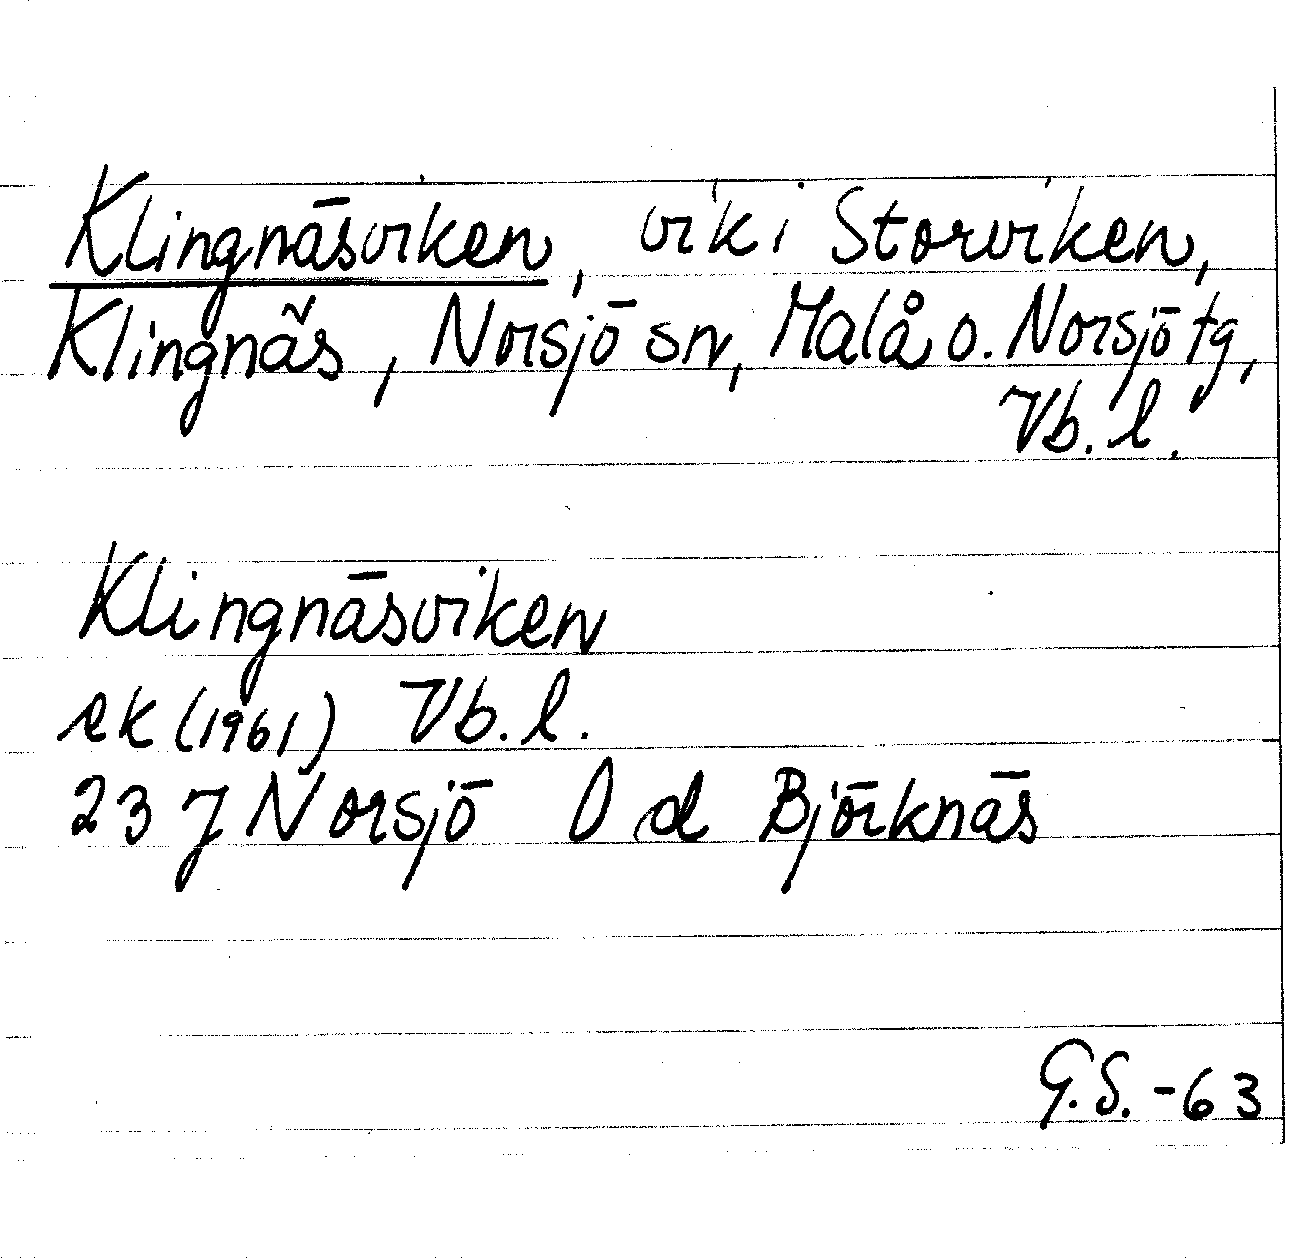 Klingnäsviken, vik i Storviken,
Klingnäs, Norsjö sn, Malå o. Norsjö tg,
Vb. l.
Klingnäsviken
ek (1961) Vb. l.
23 J Norsjö 0 d Björknäs
G.S. -63